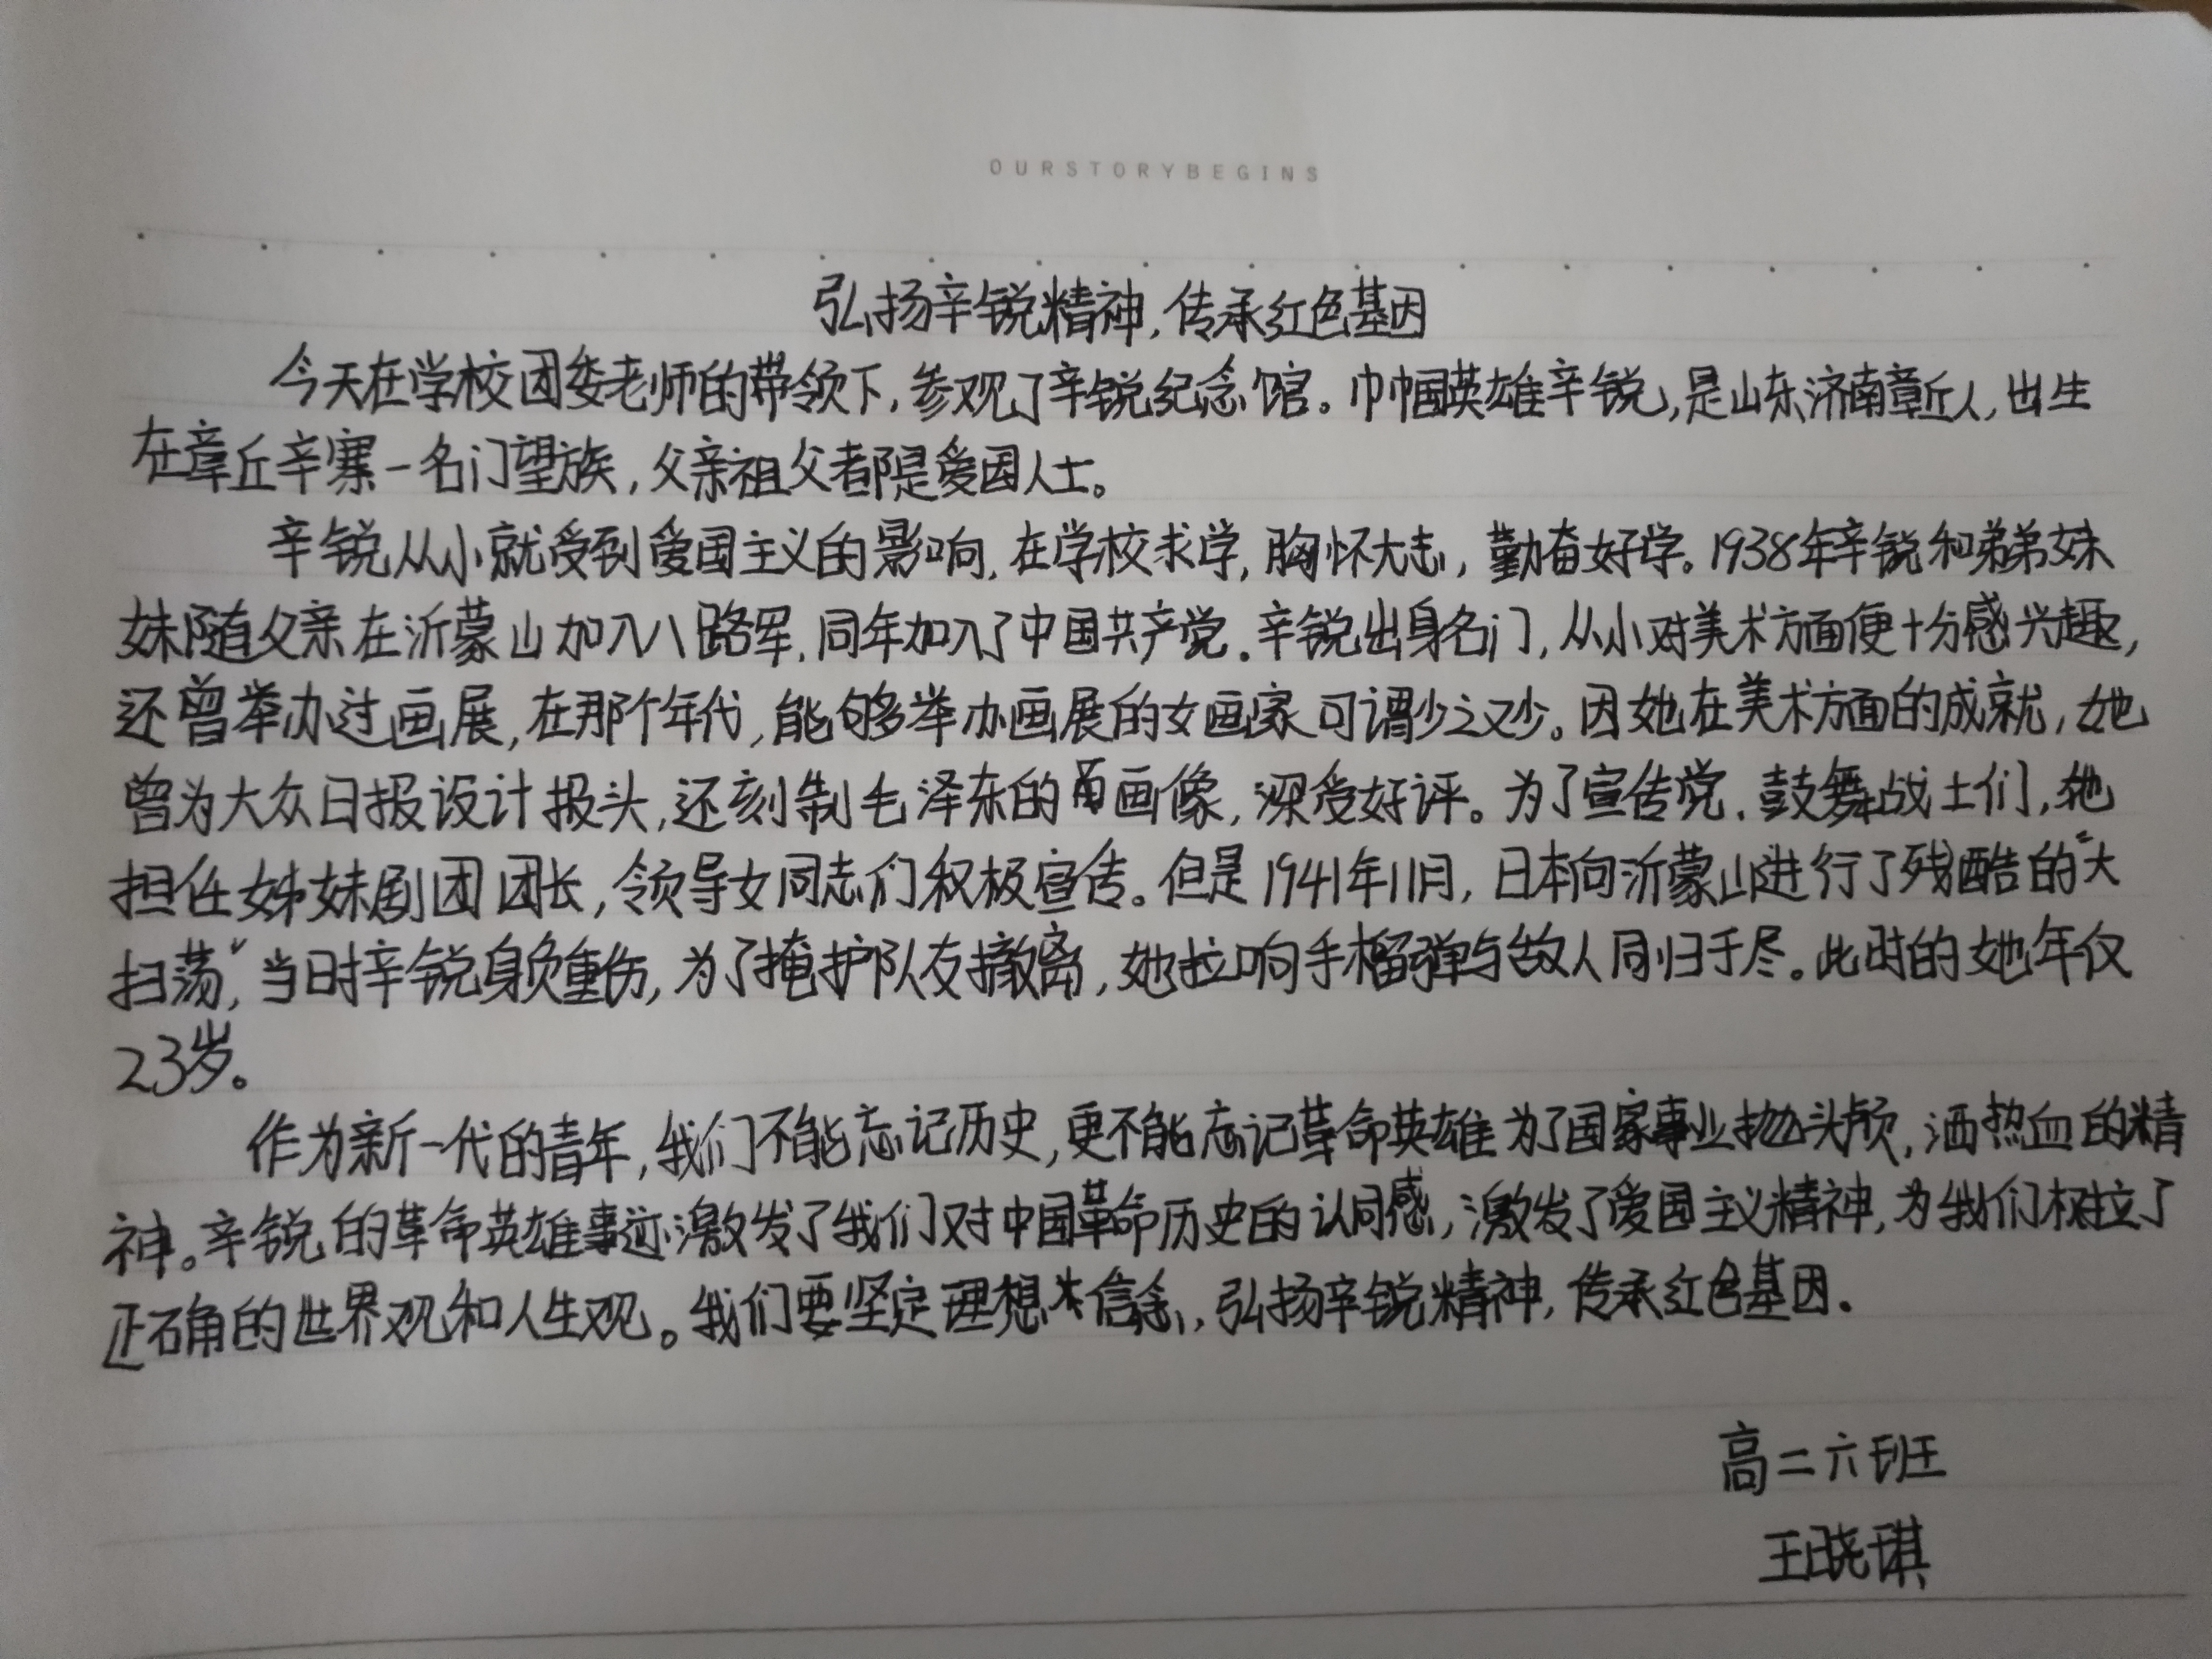 OURSTORYBEGINS
弘扬辛锐精神,传承红色基因
今天在学校团委老师的带领下,参观了辛锐纪念馆。巾帼英雄辛锐,是山东济南章丘人,出生
在章丘辛寨一名门望族,父亲祖父者都是爱国人士。
辛锐从小就受到爱国主义的影响,在学校求学,胸怀大志,勤奋好学。1938年辛锐和弟弟妹
妹随父亲在沂蒙山加入八路军,同年加入了中国共产党.辛锐出身名门,从小对美术方面便十分感兴趣,
还曾举办过画展,在那个年代,能够举办画展的女画家可谓少之又少。因她在美术方面的成就,她
曾为大众日报设计报头,还刻制毛泽东的画像,深受好评。为了宣传党.鼓舞战士们,她
担任姊妹剧团团长,领导女同志们积极宣传。但是1941年11月,日本向沂蒙山进行了残酷的“大
扫荡”,当时辛锐身负重伤,为了掩护队友撤离,她拉响手榴弹与敌人同归于尽。此时的她年仅
23岁。
作为新一代的青年,我们不能忘记历史,更不能忘记革命英雄为了国家事业抛头颅,洒热血的精
神。辛锐的革命英雄事迹激发了我们对中国革命历史的认同感,激发了爱国主义精神,为我们树立了
正确的世界观和人生观。我们要坚定理想信念,弘扬辛锐精神,传承红色基因.
高二六班
王晓琪